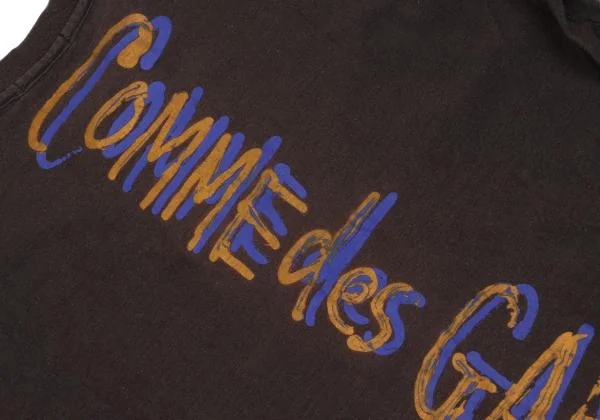 COMMEdes GA